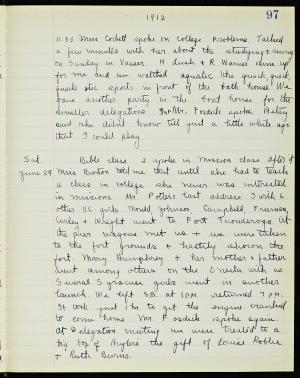 1912
97
11.35 Miss Corbett spoke on College Problems. Talked
a few minutes with her about the studying + sewing
on Sunday in Vassar. H Lush + R Warner came up
for me and we watched aquatic
stic sports in front of the bath house. We
gave another party in the boat house for the
smaller delegations. Mr. Fosdick spoke Betsy
said she didn't know till just a little while ago
that I could play.
Sat. Bible class I spoke in Mission class after
June 29 Miss Burton told me that until she had to teach
a class in college she never was interested
in missions. Mr. Potter's last address. I with 6
other V.C. girls Mould Johnson, Campbell, Freeman,
Curley + Wright went to Fort Ticonderoga. At
the pier wagons met us + we were taken
to the fort grounds + hastily shown the
fort. Mary Humphrey + her mother + father
went among others on the with us.
Several Syracuse girls went in another
launch. We left S.B. at 1 P.M. returned 7 P.M.
It took just 1 hr to get the engine cranked
to come home. Mr. Fosdick spoke again.
At delegation meeting we were treated to a
big box of Huylers the gift of Louise
+ Ruth Burns.